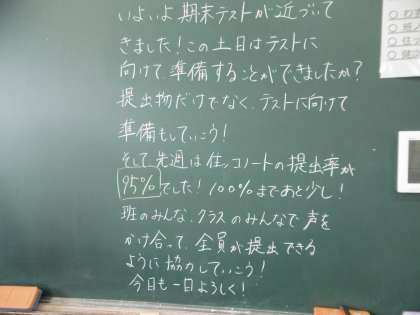 いよいよ期末テストが近づいて
きました！この土日はテストに
向けて準備することができましたか？
提出物だけでなく、テストに向けて
準備もしていこう！
そして先週は 住ッコノートの提出率が
95%でした！100%まであと少し！
班のみんな、クラスのみんなで声を
かけ合って、全員が提出できる
ように協力していこう！
今日も一日よろしく！